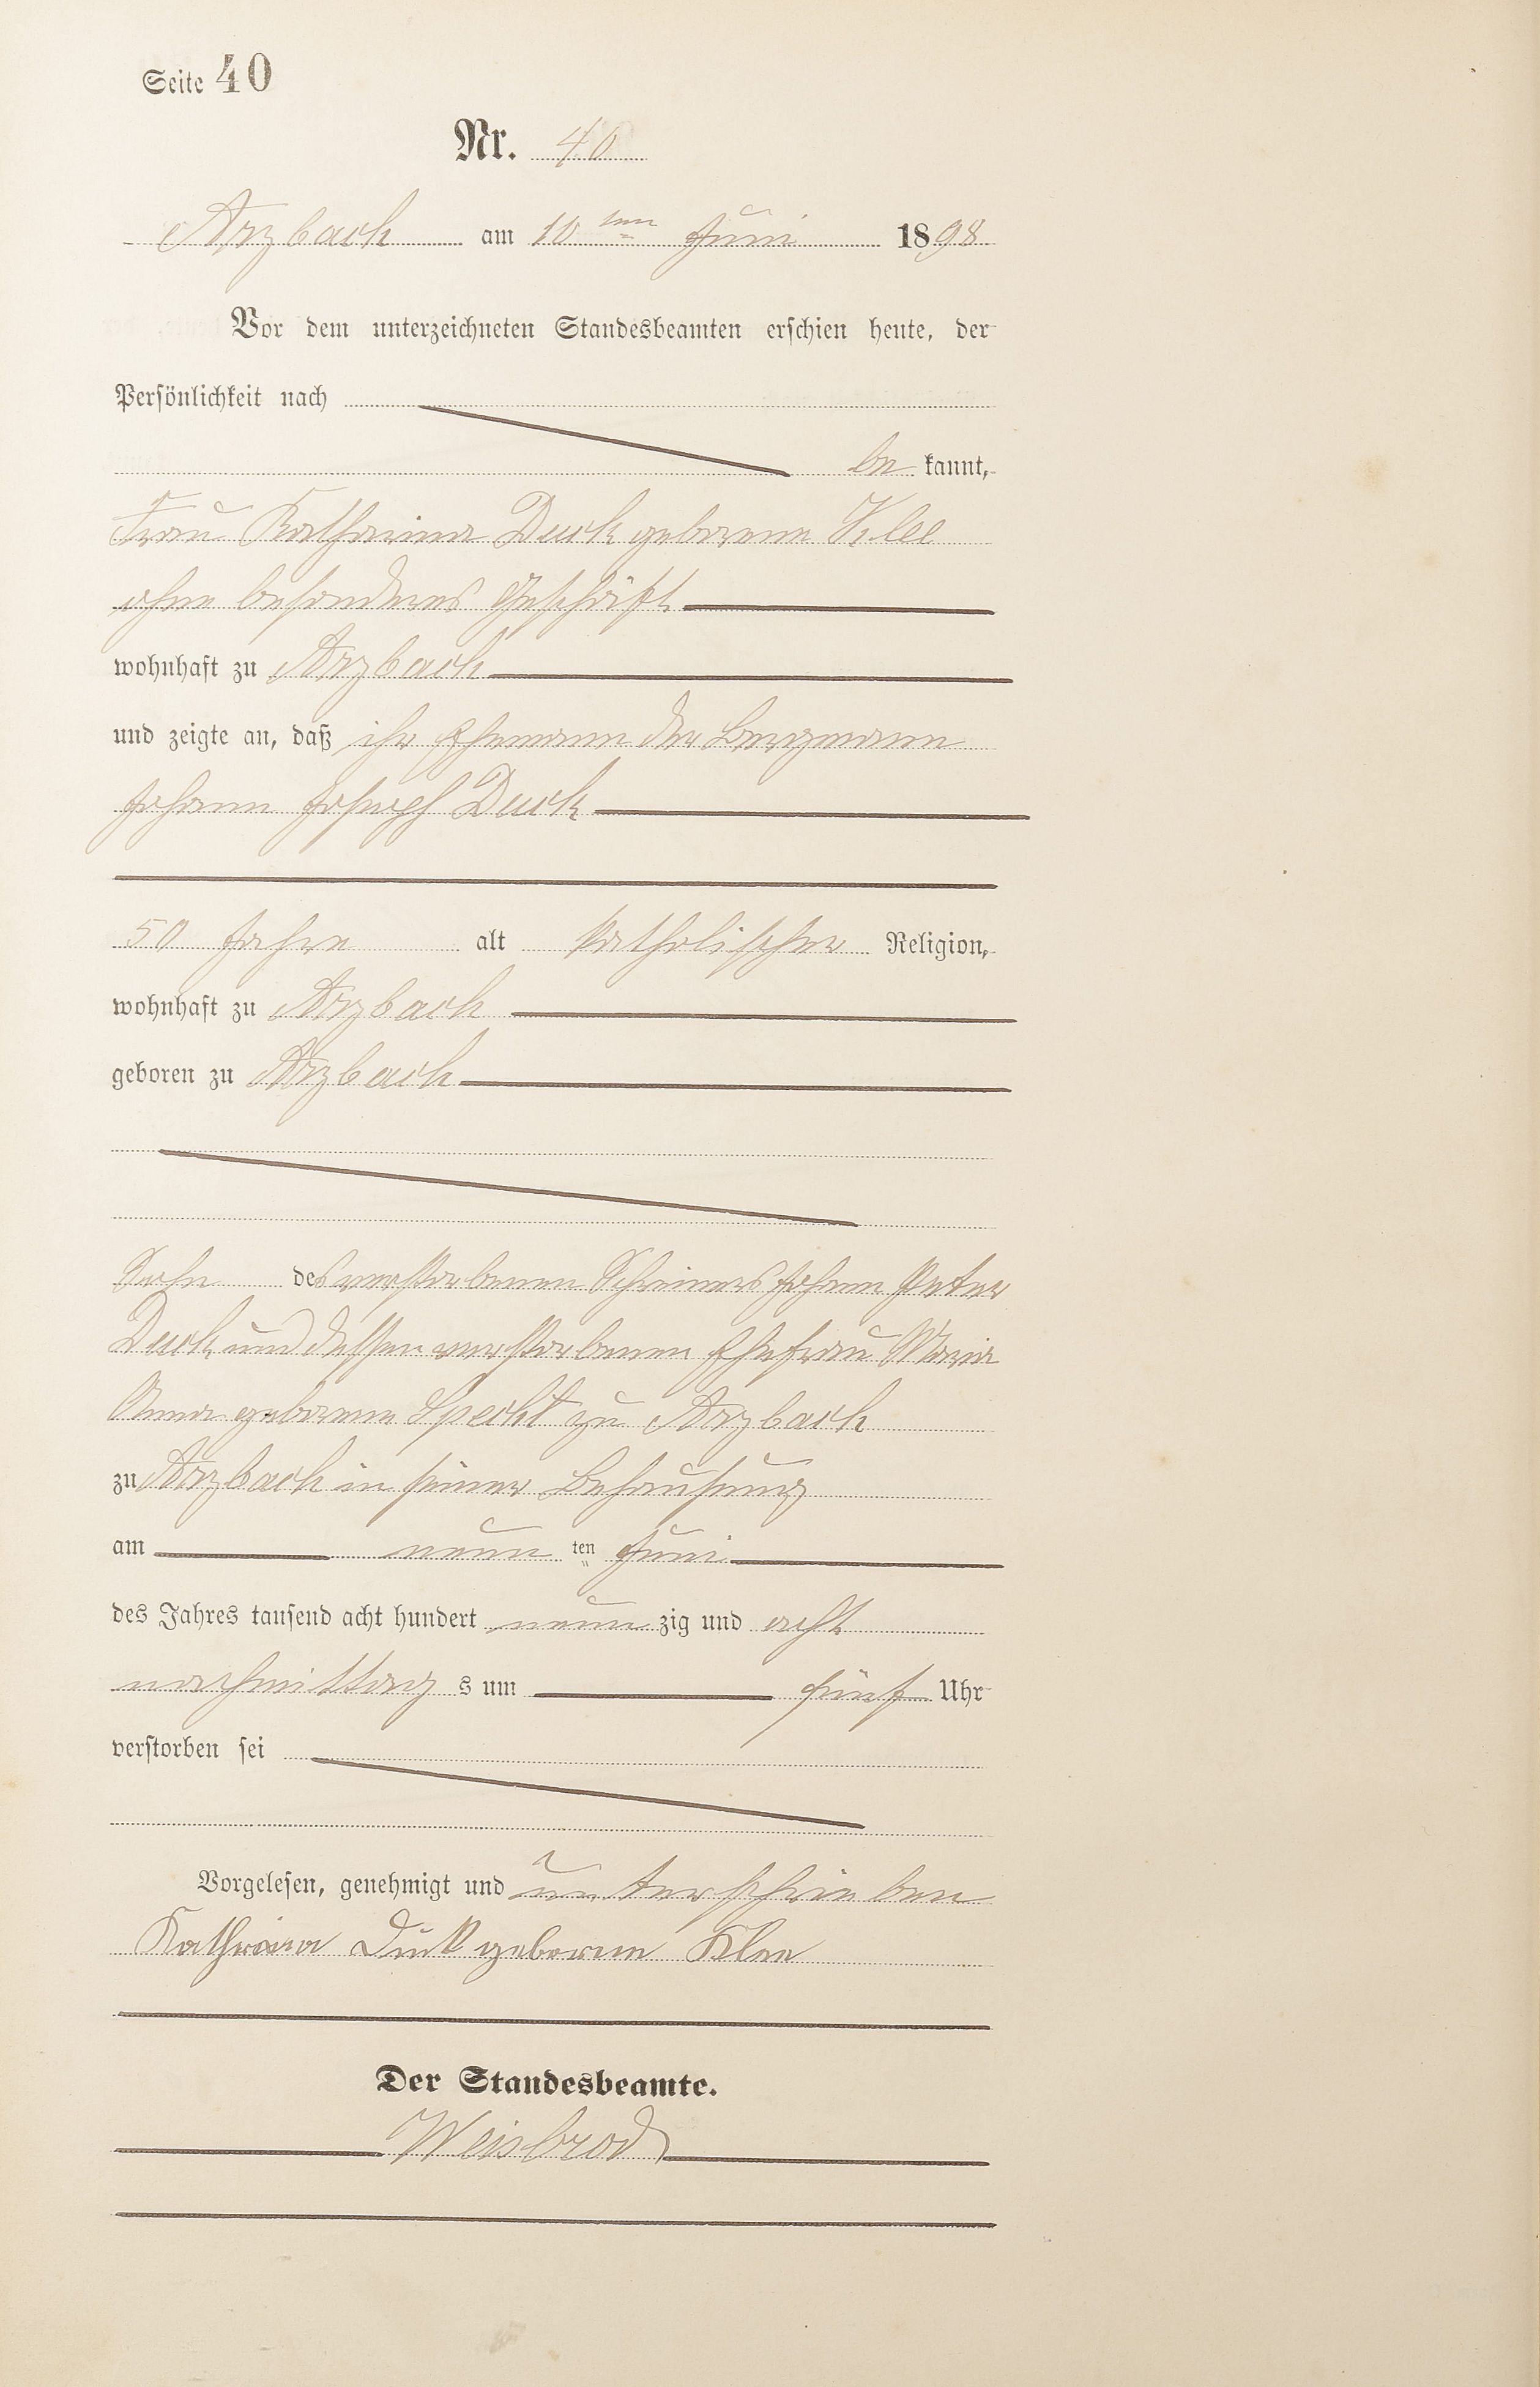 Seite 40
Nr. 40
Arzbach am 10ten Juni 1898
Vor dem unterzeichneten Standesbeamten erschien heute, der
Persönlichkeit nach
be kannt,
Frau Katharina Duck geborene Klee
ohne besonderes Geschäft
wohnhaft zu Arzbach
und zeigte an, daß ihr Ehemann der Bergmann
Johann Joseph Duck
50 Jahre alt katholischer Religion,
wohnhaft zu Arzbach
geboren zu Arzbach
Sohn des verstorbenen Schreiners Johann Peter
Duck und dessen verstorbenen Ehefrau Maria
Anna geborene Specht zu Arzbach
zu Arzbach in seiner Behausung
am neun ten Juni
des Jahres tausend acht hundert neun zig und acht
nachmittag s um fünf Uhr
verstorben sei
Vorgelesen, genehmigt und unterschrieben
Kathrina Duck geborene Klee
Der Standesbeamte.
Weisbrod